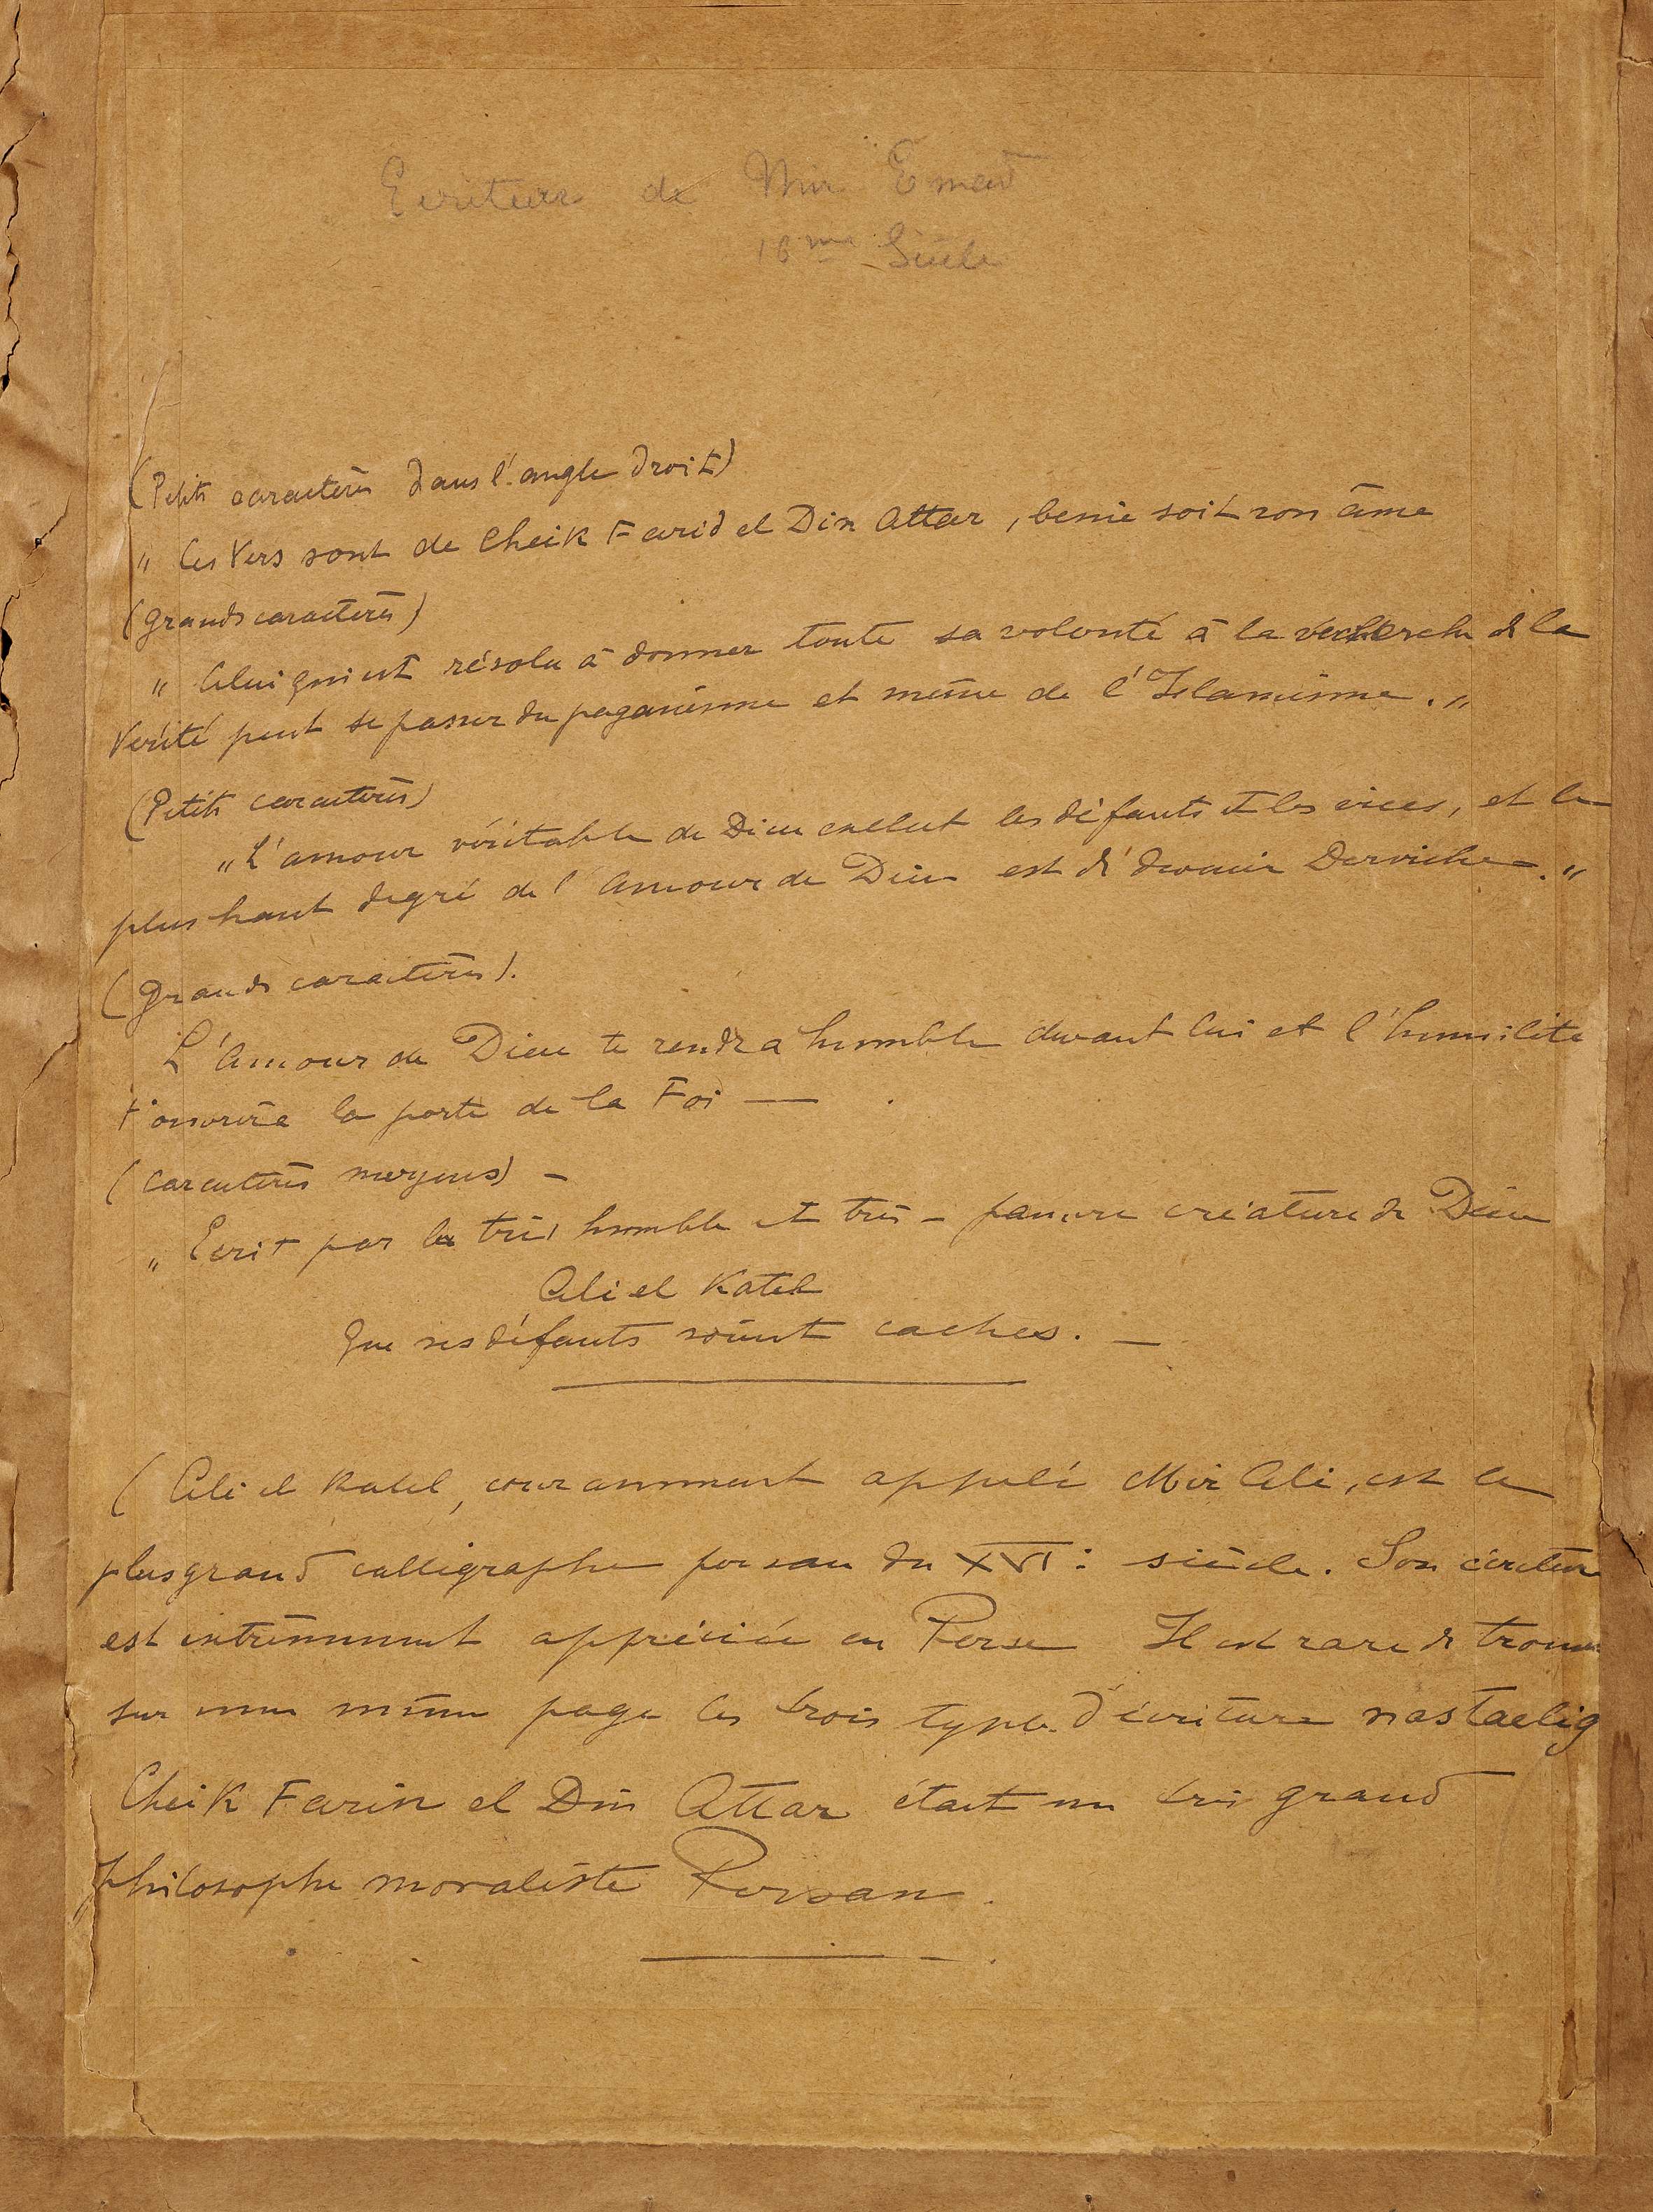 Ecriture de Mir Emad
16me Siècle
(Petits caractères dans l'angle droit)
" Ces Vers sont de Cheik Farid el Din Attar, benie soit son âme
(grands caractères)
" Celui qui est résolu à donner toute sa volonté à la recherche de la
Verité peut se passer du paganisme et même de l'Islamisme. "
(Petits caractères)
" L'amour véritable de Dieu exclut les défauts et les vices, et le
plus haut degré de l'amour de Dieu est de devenir Derviche -. "
(grands caractères).
L'amour de Dieu te rendra humble devant lui et l'humilité
t'ouvrira la porte de la Foi —
(Caractères moyens) -
" Ecrit par la très humble et très - pauvre créature de Dieu
Ali el Kateb
que ses défauts soient cachés. -
( Ali el Kateb, couramment appelé Mir Ali, est le
plus grand calligraphe persan du XVI: siècle. Son écriture
est extrêmement appréciée en Perse Il est rare de trouver
sur une même page les trois types d'écriture nastaelig
Cheik Farin el Din Attar était un très grand
philosophe moraliste Persan.